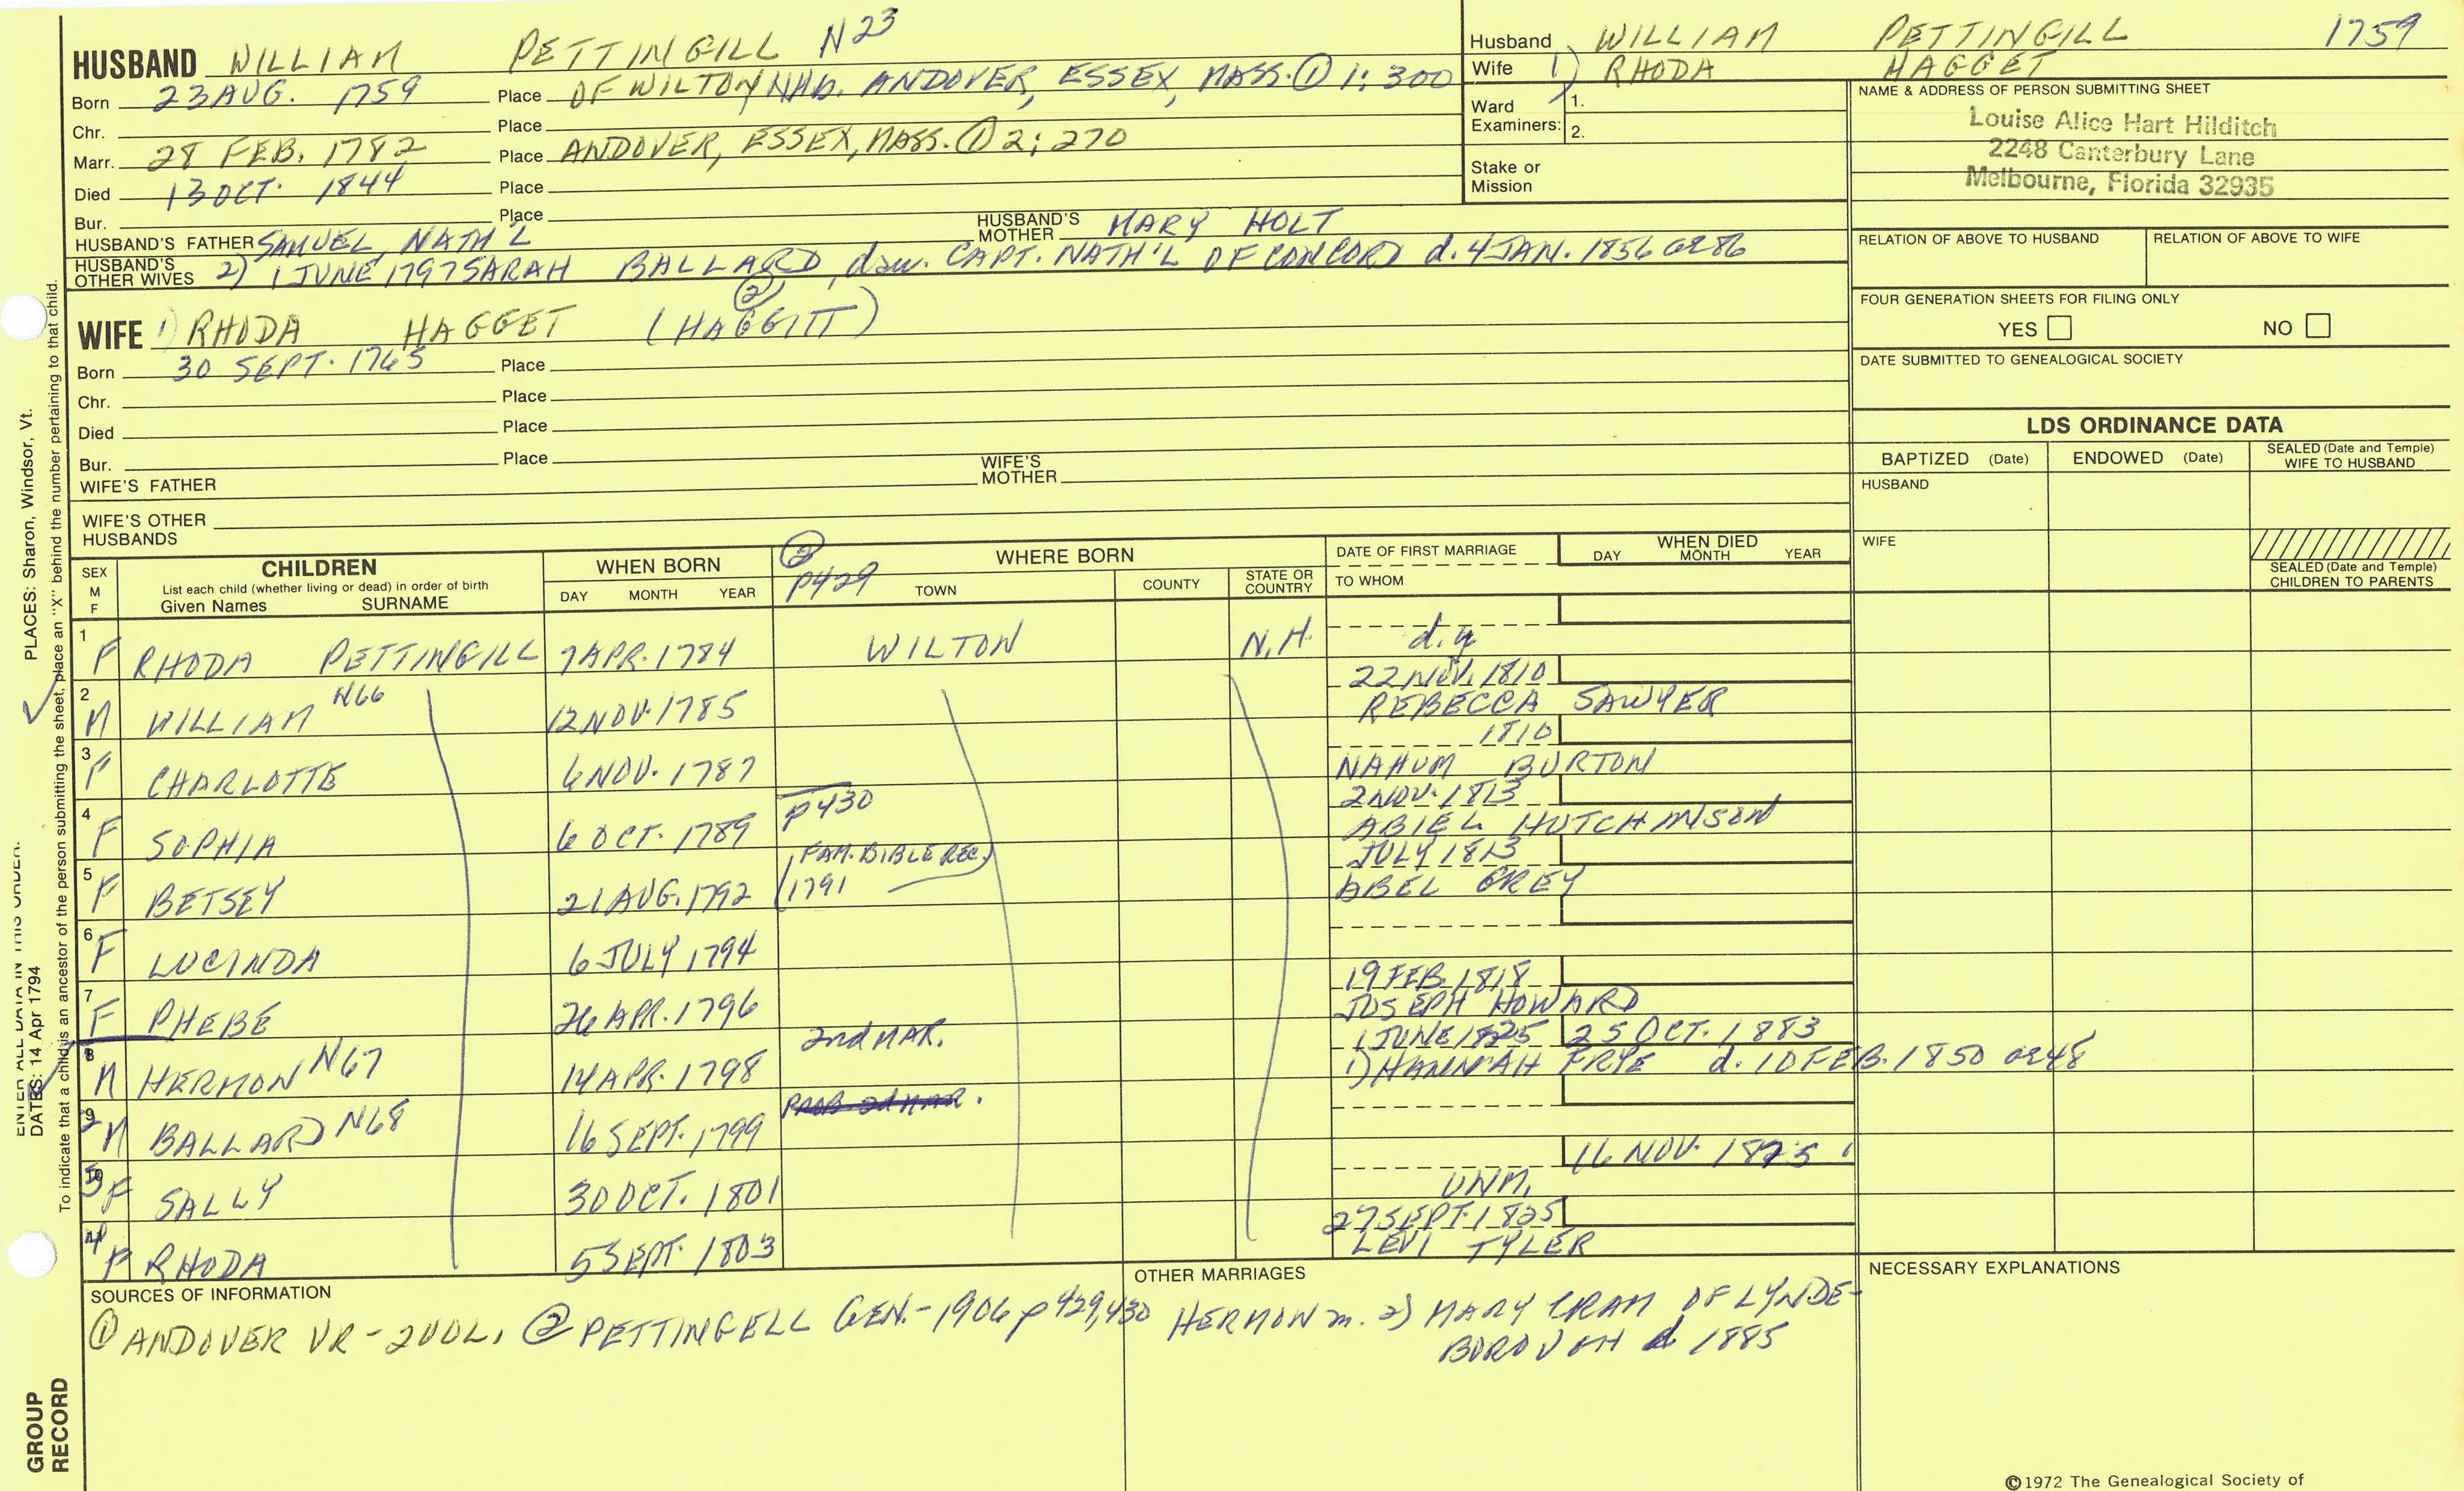 HUSBAND WILLIAM PETTINGILL N23
Born 23 AUG. 1759 Place OF WILTON, N.H. b. ANDOVER, ESSEX, MASS. ① 1:300
Chr. Place
Marr. 28 FEB. 1782 Place ANDOVER, ESSEX, MASS. ① 2:270
Died 13 OCT. 1844 Place
Bur. Place
HUSBAND'S FATHER SAMUEL, NATH'L HUSBAND'S MOTHER MARY HOLT
HUSBAND'S OTHER WIVES 2) 1 JUNE 1797 SARAH BALLARD, dau. CAPT. NATH'L OF CONCORD d. 4 JAN. 1856 ae 86
②
WIFE 1) RHODA HAGGET (HAGGITT)
Born 30 SEPT. 1765 Place
Chr. Place
Died Place
Bur. Place
WIFE'S FATHER WIFE'S MOTHER
WIFE'S OTHER HUSBANDS
Husband WILLIAM PETTINGILL 1759
Wife 1) RHODA HAGGET
Ward Examiners: 1.
2.
Stake or Mission
NAME & ADDRESS OF PERSON SUBMITTING SHEET
Louise Alice Hart Hilditch
2248 Canterbury Lane
Melbourne, Florida 32935
RELATION OF ABOVE TO HUSBAND RELATION OF ABOVE TO WIFE
FOUR GENERATION SHEETS FOR FILING ONLY
YES NO
DATE SUBMITTED TO GENEALOGICAL SOCIETY
LDS ORDINANCE DATA
BAPTIZED (Date) ENDOWED (Date) SEALED (Date and Temple) WIFE TO HUSBAND
HUSBAND
WIFE
SEALED (Date and Temple) CHILDREN TO PARENTS
SEX M F CHILDREN List each child (whether living or dead) in order of birth Given Names SURNAME
WHEN BORN DAY MONTH YEAR
② P429 WHERE BORN TOWN COUNTY STATE OR COUNTRY
DATE OF FIRST MARRIAGE TO WHOM
WHEN DIED DAY MONTH YEAR
1 F RHODA PETTINGILL 7 APR. 1784 WILTON N.H. d.y
2 M WILLIAM N66 12 NOV. 1785 22 NOV. 1810 REBECCA SAWYER
3 F CHARLOTTE 6 NOV. 1787 1810 NAHUM BURTON
4 F SOPHIA 6 OCT. 1789 P430 2 NOV. 1813 ABIEL HUTCHINSON
5 F BETSEY 21 AUG. 1792 (FAM. BIBLE REC.) 1791 JULY 1813 ABEL GREY
6 F LUCINDA 6 JULY 1794
7 F PHEBE 26 APR. 1796 19 FEB. 1818 JOSEPH HOWARD
8 M HERMON N67 14 APR. 1798 2nd MAR. 1 JUNE 1825 25 OCT. 1883 1) HANNAH FRYE d. 10 FEB. 1850 ae 48
9 M BALLARD N68 16 SEPT. 1799 PROB 2d MAR.
10 F SALLY 30 OCT. 1801 16 NOV. 1825 UNM.
11 F RHODA 5 SEPT. 1803 27 SEPT. 1825 LEVI TYLER
SOURCES OF INFORMATION
① ANDOVER VR - 2 VOL. ② PETTINGELL GEN. - 1906 p 429,430
OTHER MARRIAGES
HERMON m. 2) MARY CRAM OF LYNDE-
BOROUGH d 1885
NECESSARY EXPLANATIONS
©1972 The Genealogical Society of
PLACES: Sharon, Windsor, Vt.
To indicate that a child is an ancestor of the person submitting the sheet, place an "X" behind the number pertaining to that child.
ENTER ALL DATA IN THIS ORDER:
DATES: 14 Apr 1794
GROUP
RECORD